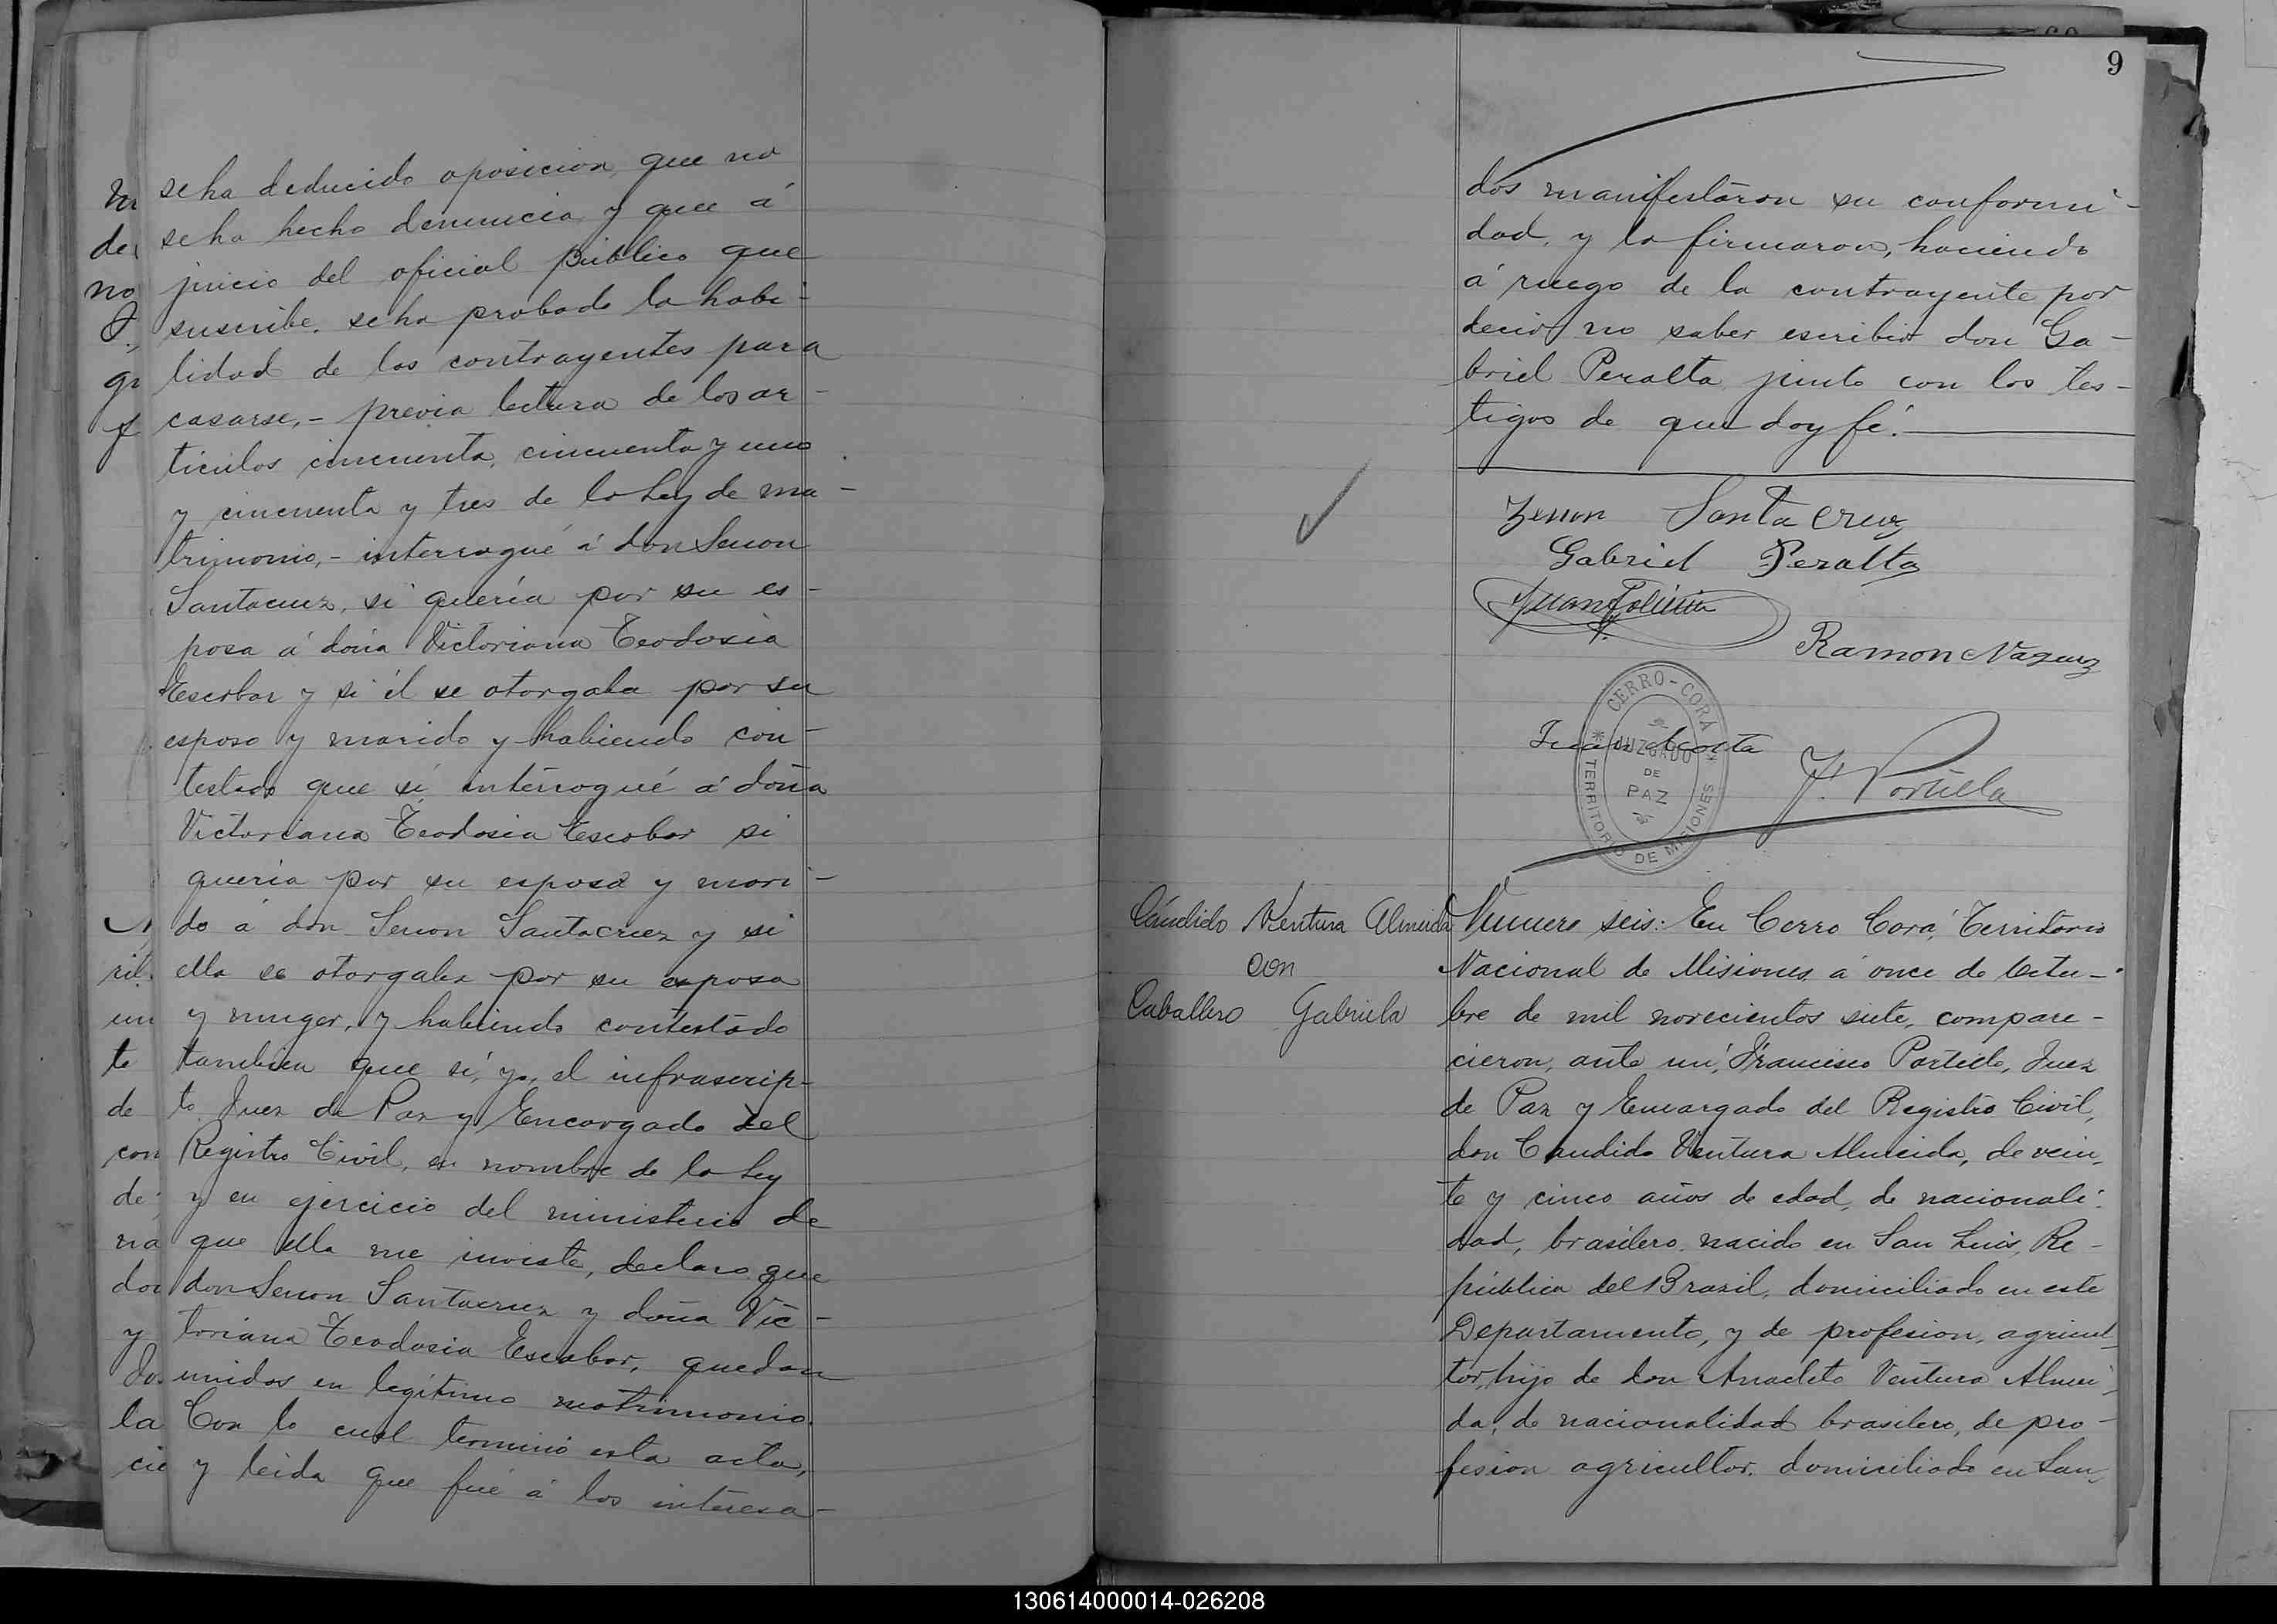 se ha deducido oposicion, que no
se ha hecho denuncia y que á
juicio del oficial público que
suscribe. se ha probado la habi-
lidad de los contrayentes para
casarse,- previa lectura de los ar-
ticulos cincuenta, cincuenta y uno
y cincuenta y tres de la Ley de ma-
trimonio,- interrogué á don Senon
Santacruz, si quería por su es-
posa á doña Victoriana Teodosia
Escobar y si él se otorgaba por su
esposo y marido y habiendo con-
testado que sí interrogué á doña
Victoriana Teodosia Escobar si
queria por su esposo y mari-
do á don Senon Santacruz y si
ella se otorgaba por su esposa
y muger, y habiendo contestado
tambien que sí, yo, el infrascrip-
to Juez de Paz y Encargado del
Registro Civil, en nombre de la Ley
y en ejercicio del ministerio de
que ella me inviste, declaro que
don Senon Santacruz y doña Vic-
toriana Teodosia Escobar, quedan
unidos en legítimo matrimonio.
Con lo cual terminó esta acta,
y leida que fué á los interesa-
9
dos manifestáron su conformi-
dad, y la firmaron, haciendo
á ruego de la contrayente por
decir no saber escribir don Ga-
briel Peralta junto con los tes-
tigos de que doy fé.
Zenon Santa Cruz
Gabriel Peralta
Juan
Ramon
CERRO-CORÁ
JUZGADO
DE
PAZ
TERRITORIO DE MISIONES
Juan Acosta
F. Portillo
Cándido Ventura Almeida
con
Caballero Gabriela
Numero seis: En Cerro Corá, Territorio
Nacional de Misiones, á once de Octu-
bre de mil novecientos siete, compare-
cieron, ante mí, Francisco Portillo, Juez
de Paz y Encargado del Registro Civil,
don Candido Ventura Almeida, de vein-
te y cinco años de edad, de nacionali-
dad, brasilero, nacido en San Luis, Re-
pública del Brazil, domiciliado en este
Departamento, y de profesion, agricul-
tor, hijo de don Anacleto Ventura Almei-
da, de nacionalidad brasilero, de pro-
fesion agricultor, domiciliado en San
130614000014-026208